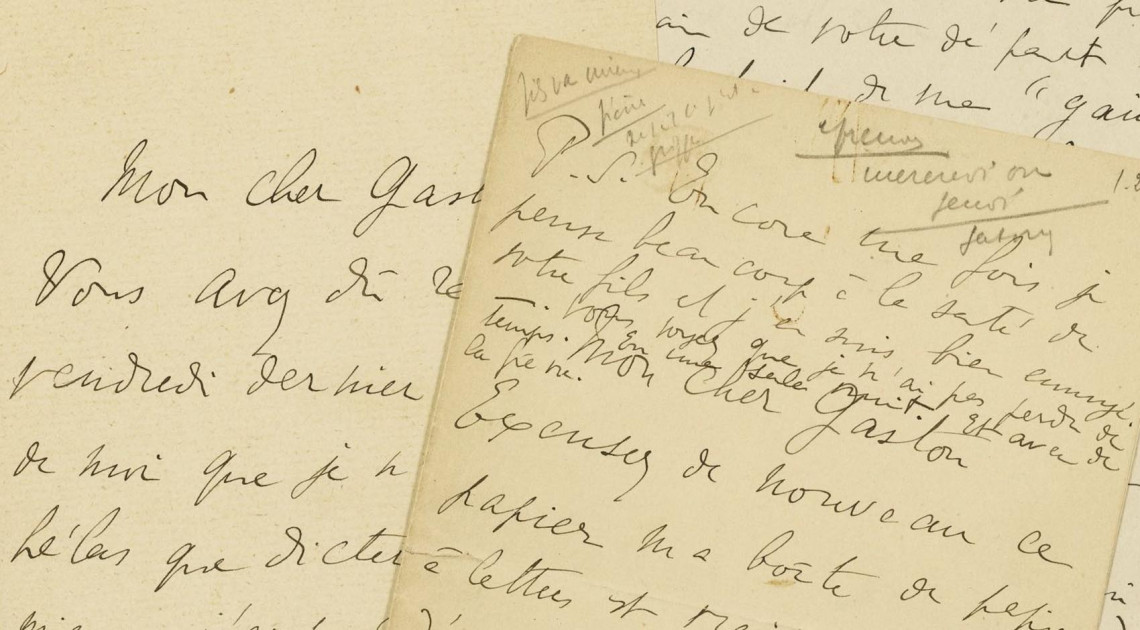 de votre départ
de me "gai
Mon cher Gast
Vous avez dû re
vendredi dernier
de moi que je n
hélas que dicter
fils va mieux
épreuves
mercredi ou
jeudi
P.S. Encore une fois je
pense beaucoup à la santé de
votre fils et j'en suis bien ennuyé.
Vous voyez que je n'ai pas perdu de
temps. En une seule nuit et avec de
la fièvre.
Mon cher Gaston
Excusez de nouveau ce
papier ma boîte de papier
à lettres est